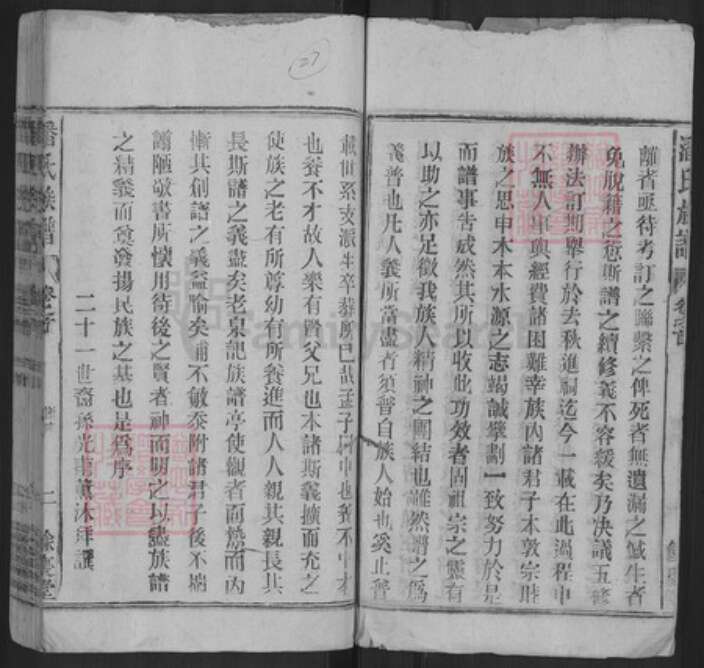 27
離者亟待考訂之聯繫之俾死者無遺漏之憾生者
免脫籍之愆斯譜之續修義不容緩矣乃決議五修
辦法訂期舉行於去秋進祠迄今一載在此過程中
不無人事與經費諸困難幸族內諸君子本敦宗睦
族之思申木本水源之志竭誠擘劃一致努力於是
而譜事告成然其所以收此功效者固祖宗之靈有
以助之亦足徵我族人精神之團結也雖然譜之為
義普也凡人義所當盡者須普自族人始也奚止普
載世系支派生卒葬所已哉孟子曰中也養不中才
也養不才故人樂有賢父兄也本諸斯義擴而充之
使族之老有所尊幼有所養進而人人親其親長其
長斯譜之義盡矣老泉記族譜亭使觀者而勢而內
慚其創譜之義益喻矣 不敏忝附諸君子後不揣
譾陋敬書所懷用待後之賢者神而明之以盡族譜
之精義而奠發揚民族之基也是為序
二十一世裔孫光 薰沐拜譔
氏族譜 卷之首
二 餘慶堂